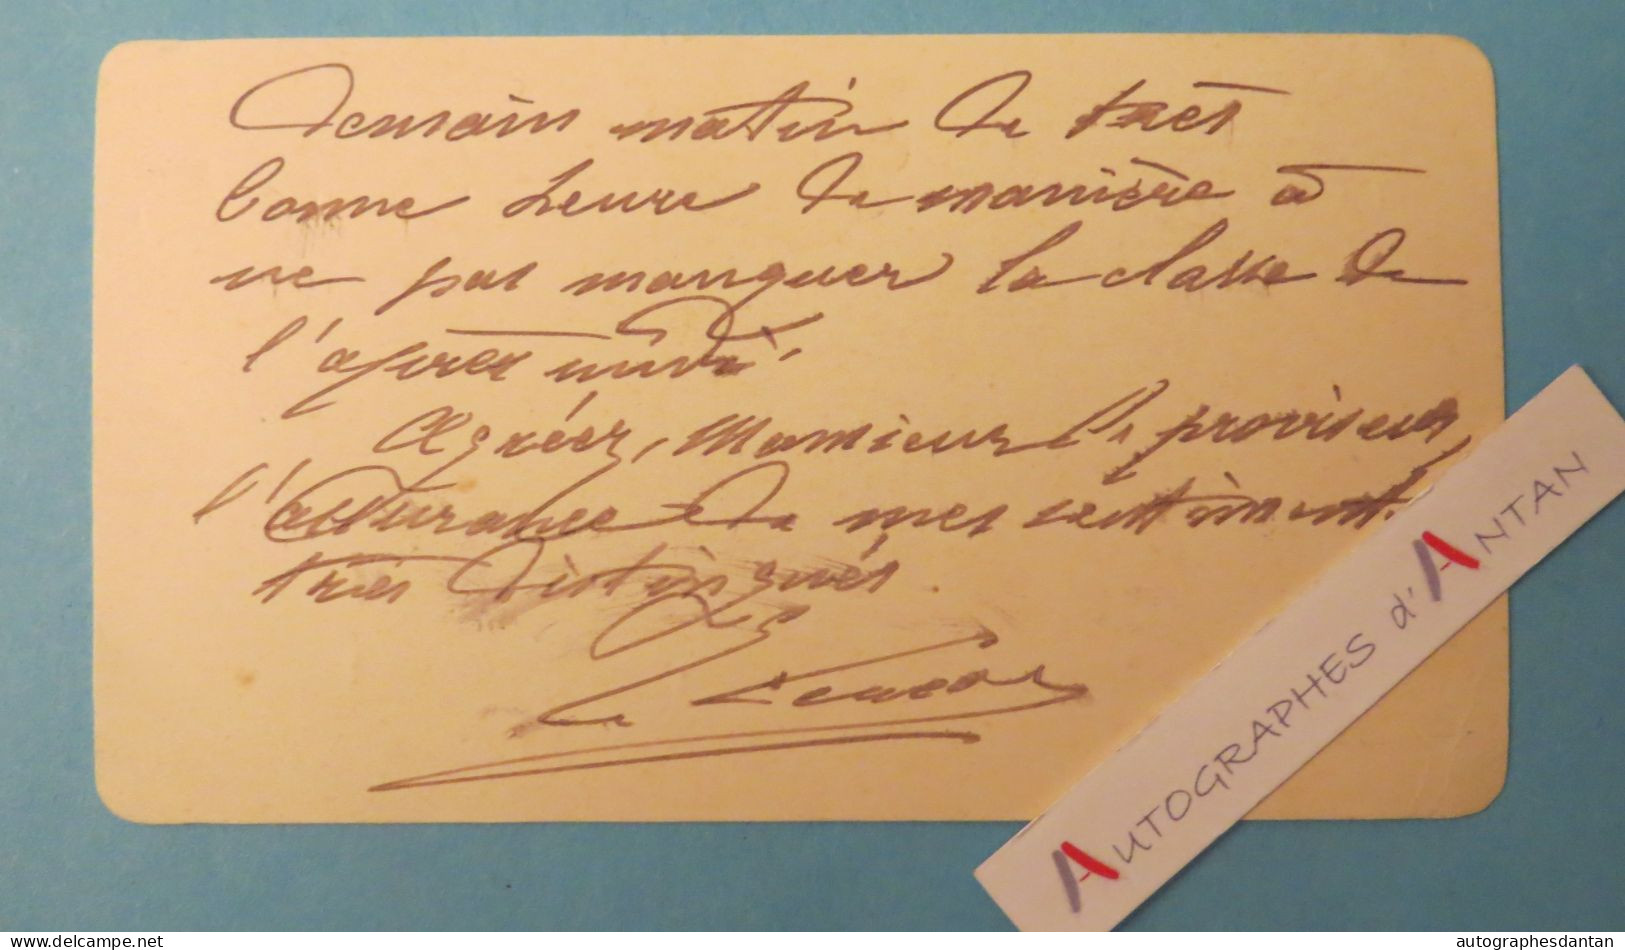 Demain matin de très
bonne heure de manière à
ne pas manquer la classe de
l'après midi.
Agréez, Monsieur le proviseur,
l'assurance de mes sentiments
très distingués.
AUTOGRAPHES d'ANTAN
www.delcampe.net
autographesdantan